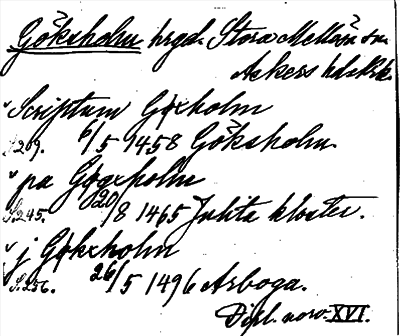 Göksholm hrgd. Stora Mellösa sn
Askers hd. Nrk.
Scriptum Gøxholm
S. 209. 6/5 1458 Göksholm.
pa Gøgxholm
S. 245. 20/8 1465 Julita kloster.
j Gøkxholm
S. 256. 26/5 1496 Arboga.
Dipl. norv. XVI.